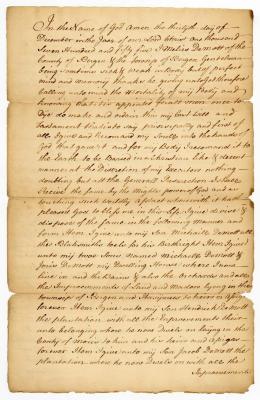 In the Name of God Amen the thirtyth day of
December in the Year of our Lord Christ one thousand
Seven Hundred and fifty five I Matties DeMott of the
County of Bergen & the Provence of Gentelman
being Somtwin sick & weak in Body but of perfect
mind and memory thanks be given unto god therefore
Calling unto mind the Mortality of my Body and
knowing that it is appointed for all men once to
Dye do make and ordain this my Last Will and
Testament that is to say principaly and first of
all I give and Recomand my Soull into the hands of
God that gave it and for my Body I recomand it to
the Earth to be Buried in a Christian like & decent
manner at the Discretion of my Executors nothing
doubting but at the General Resurection I shall
Receive the same by the Mighty power of God and as
touching such worldly Estate wherewith it hath
pleased God to bless me in this life I give devise &
dispose of the same in the following manner and
form Item I give unto my Son Michaell Demott all
the Blacksmiths tools for his Birthright Item I give
unto my two Sones Named Michaell Demott &
Joris Demott my Dwelling House where I now
live in and the Barns & also the Orchards and all
the Improvements of Land and Medow lying in the
township of Bergen and to heirs & assigns
forever Item I give unto my Son Hendrick Demott
the plantation with all the Improvements there
unto belonging where he now Dwels on laying in the
County of to him and his heirs and assigns
forever Item I give unto my Son Jacob Demott the
plantation where he now Dwels on with all the
Improvements